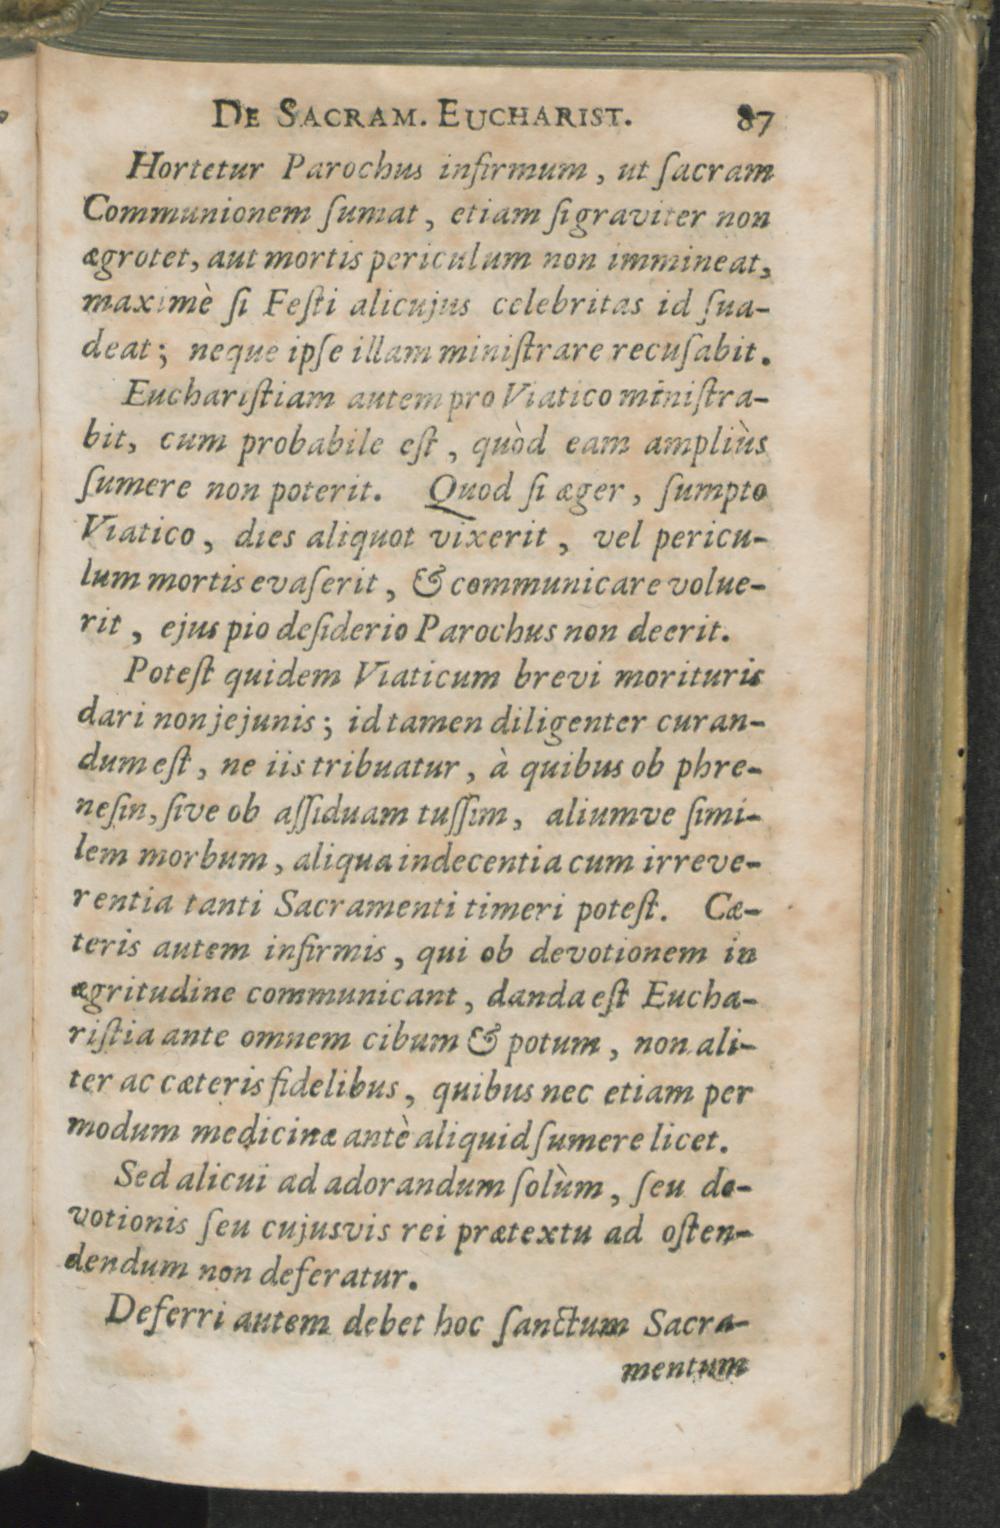 DE SACRAM. EUCHARIST. 87
Hortetur Parochus infirmum, ut ſacram
Communionem ſumat, etiam ſi graviter non
ægrotet, aut mortis periculum non immineat,
maximè ſi Feſti alicujus celebritas id ſua-
deat; neque ipſe illam miniſtrare recuſabit.
Euchariſtiam autem pro Viatico miniſtra-
bit, cum probabile eſt, quòd eam ampliùs
ſumere non poterit. Quod ſi æger, ſumpto
Viatico, dies aliquot vixerit, vel pericu-
lum mortis evaſerit, & communicare volue-
rit, ejus pio deſiderio Parochus non deerit.
Poteſt quidem Viaticum brevi morituris
dari non jejunis; id tamen diligenter curan-
dum eſt, ne iis tribuatur, à quibus ob phre-
neſin, ſive ob aſſiduam tuſſim, aliumve ſimi-
lem morbum, aliqua indecentia cum irreve-
rentia tanti Sacramenti timeri poteſt. Cæ-
teris autem infirmis, qui ob devotionem in
ægritudine communicant, danda eſt Eucha-
riſtia ante omnem cibum & potum, non ali-
ter ac cæteris fidelibus, quibus nec etiam per
modum medicinæ antè aliquid ſumere licet.
Sed alicui ad adorandum ſolùm, ſeu de-
votionis ſeu cujusvis rei prætextu ad oſten-
dendum non deferatur.
Deferri autem debet hoc ſanctum Sacra-
mentum